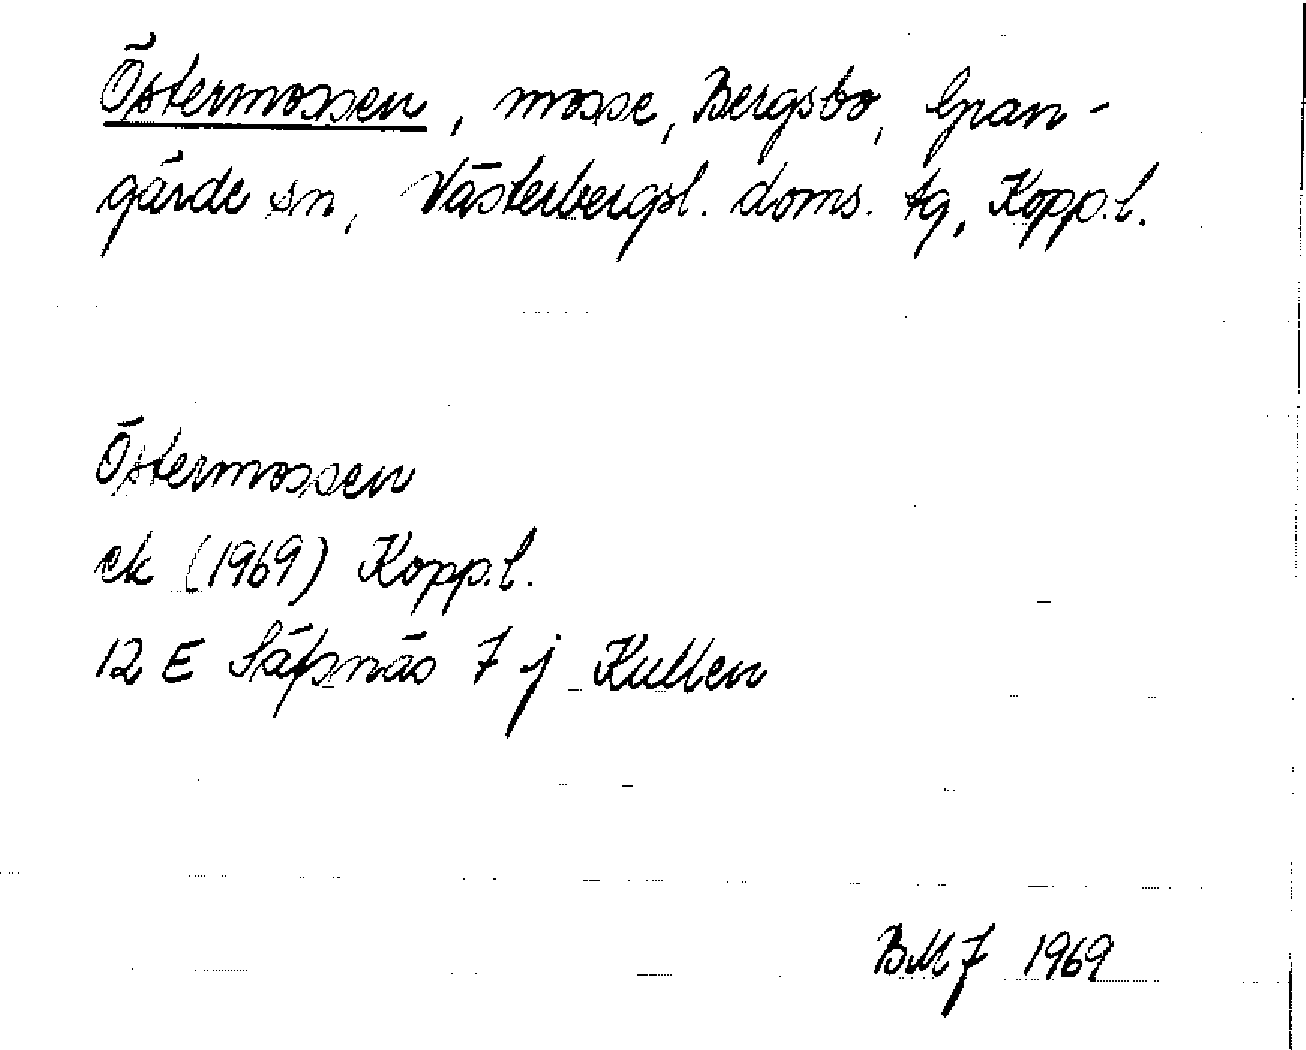 Östermossen, mosse, Bergsbo, Gran-
gärde sn, Västerbergsl. doms. tg, Kopp.l.
Östermossen
ek (1969) Kopp.l.
12 E Säfsnäs 7 j Kullen
BMJ 1969